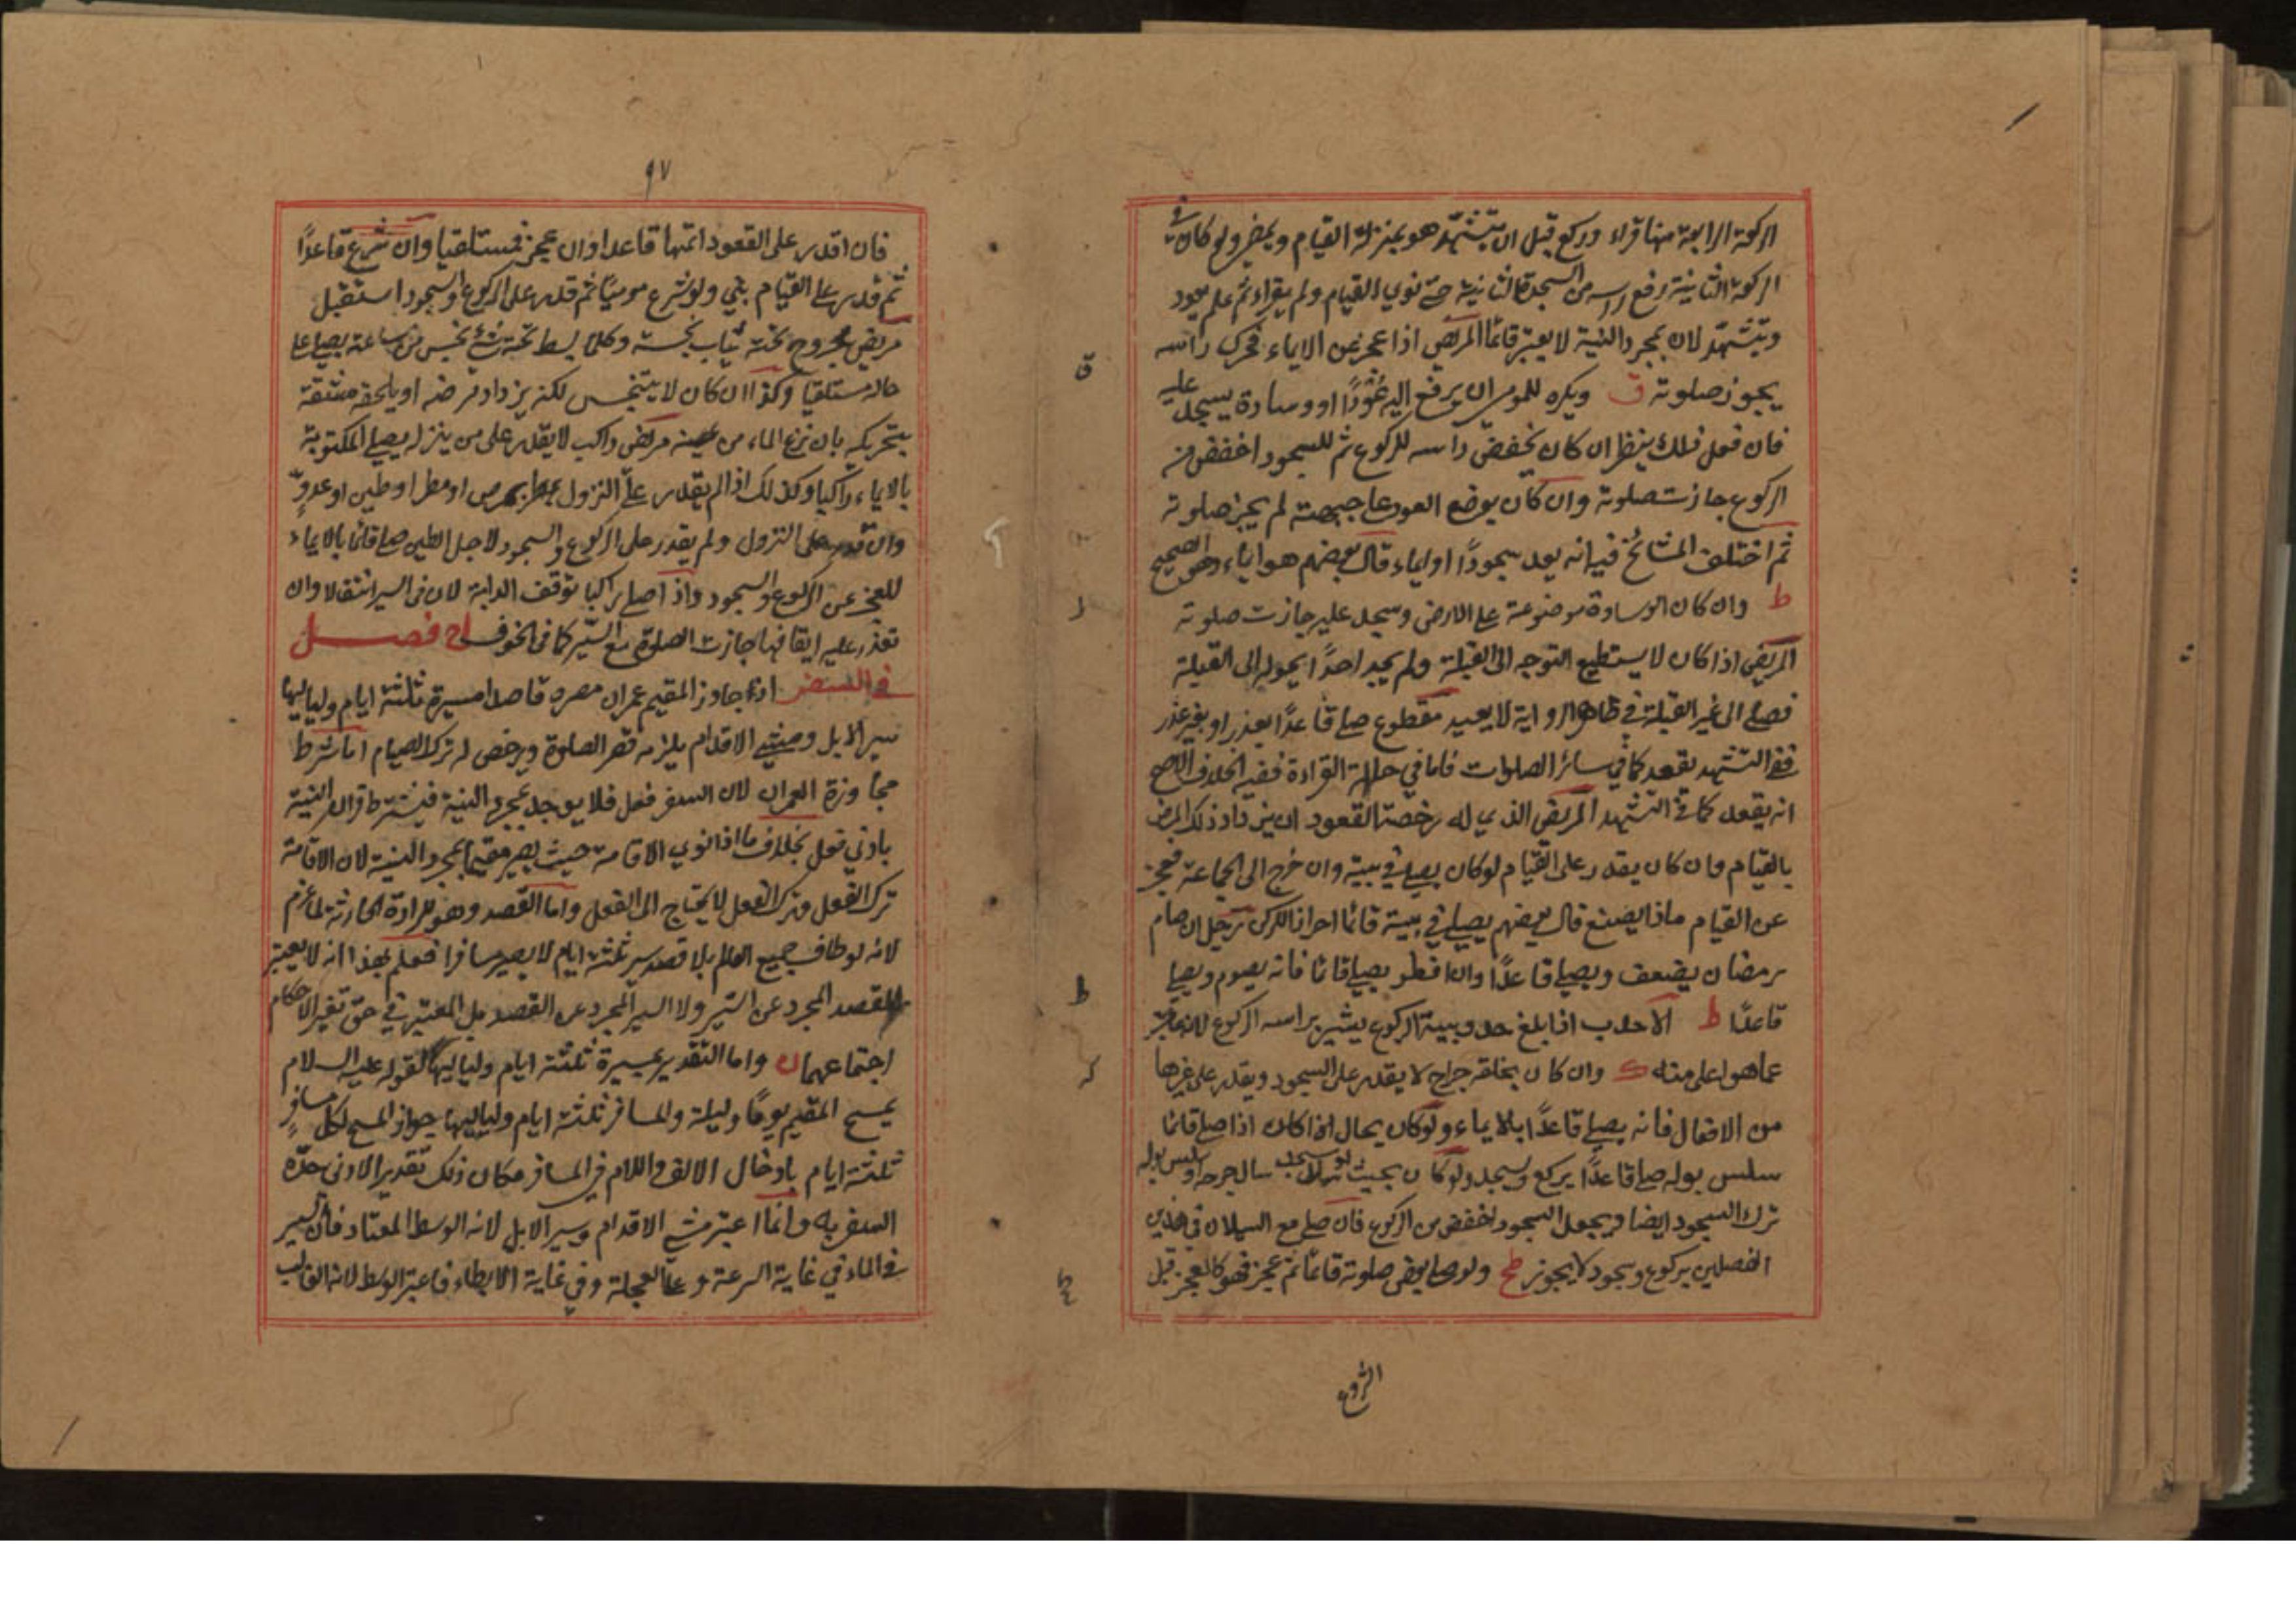 الركعة الرابعة منها قراء وركع قبل ان يتشهد هو بمنزلة القيام ويمضي ولو كان في
الركعة الثانية رفع راسه من السجدة الثانية حتى نوى القيام ولم يقراء ثم علم يعود
ويتشهد لان بمجرد النية لا يعتبر قائما المريض اذا عجز عن الايماء فحرك راسه
يجوز صلوته ق ويكره للمومى ان يرفع اليه عودًا او وسادة يسجد عليه
فان فعل ذلك ينظر ان كان يخفض راسه للركوع ثم للسجود اخفض من
الركوع جازت صلوته وان كان يوضع العود على جبهته لم يجز صلوته
ثم اختلف المشائخ فيه انه يعد سجودًا او ايماء قال بعضهم هو ايماء وهو الصحيح
ط وان كان الوسادة موضوعة على الارض وسجد عليه جازت صلوته
المريض اذا كان لا يستطيع التوجه الى القبلة ولم يجد احدًا يحوله الى القبلة
فصلى الى غير القبلة في ظاهر الرواية لا يعيد مقطوع صلى قاعدًا بعذر او بغير عذر
ففي التشهد يقعد كما في سائر الصلوات فاما في حالة القراءة ففيه اختلاف الاصح
انه يقعد كما في التشهد المريض الذي له رخصة القعود ان يزداد ذلك المرض
بالقيام وان كان يقدر على القيام لو كان يصلي في بيته وان خرج الى الجماعة فعجز
عن القيام ماذا يصنع قال بعضهم يصلي في بيته قائما احرازا للركن رجل ان صام
رمضان يضعف ويصلي قاعدًا وان افطر يصلي قائما فانه يصوم ويصلي
قاعدًا ط الاحدب اذا بلغ حدوبيته الركوع يشير براسه الركوع لانه عاجز
عما هو اعلى منه ك وان كان بحلقه جراح لا يقدر على السجود ويقدر على غيرها
من الافعال فانه يصلي قاعدًا بالايماء ولو كان بحال اذا كان اذا صلى قائما
سلس بوله صلى قاعدًا يركع ويسجد ولو كان بحيث لو سجد سال جرحه او سلس بوله
ترك السجود ايضا ويجعل السجود اخفض من الركوع فان صلى مع السيلان في هذين
الفصلين بركوع وسجود لا يجوز طح ولو صلى بعض صلوته قائما ثم عجز فهو كالعجز قبل
الشروع
٩٧
فان قدر على القعود اتمها قاعدا وان عجز فمستلقيا وان شرع قاعدًا
ثم قدر على القيام بنى ولو شرع موميًا ثم قدر على الركوع والسجود استقبل
مريض مجروح تحته ثياب نجسة وكلما بسط تحته شئ نجس من ساعته يصلي على
حاله مستلقيا وكذا ان كان لا يتنجس لكنه يزداد مرضه او يلحقه مشقة
بتحريكه بان نزع الماء من عينه مريض راكب لا يقدر على من ينزله يصلي المكتوبة
بالايماء راكبا وكذلك اذا لم يقدر على النزول بمرض او مطر او طين او عدوٍّ
وان قدر على النزول ولم يقدر على الركوع والسجود لاجل الطين صلى قائما بالايماء
للعجز عن الركوع والسجود واذا صلى راكبا توقف الدابة لان في السير انتقالا وان
تعذر عليه ايقافها جازت الصلوة مع السير كما في الخوف فصل
في السفر اذا جاوز المقيم عمران مصره قاصدا مسيرة ثلثة ايام ولياليها
سير الابل ومشي الاقدام يلزمه قصر الصلوة ويرخص له ترك الصيام اما شرط
مجاوزة العمران لان السفر فعل فلا يوجد بمجرد النية فيشترط قران النية
بادنى فعل بخلاف ما اذا نوى الاقامة حيث يصير مقيما بمجرد النية لان الاقامة
ترك الفعل وترك الفعل لا يحتاج الى الفعل واما القصد وهو الارادة الحادثة لما عزم
لانه لو طاف جميع العالم بلا قصد سير ثلثة ايام لا يصير مسافرا فعلم بهذا انه لا يعتبر
القصد المجرد عن السير ولا السير المجرد عن القصد بل المعتبر في حق تغير الاحكام
اجتماعهما واما التقدير بمسيرة ثلثة ايام ولياليها لقوله عليه السلام
يمسح المقيم يومًا وليلة والمسافر ثلثة ايام ولياليها جواز المسح لكل مسافرٍ
ثلثة ايام بادخال الالف واللام في المسافر فكان ذلك تقدير الادنى مدة
السفر به وانما اعتبر مشي الاقدام وسير الابل لانه الوسط المعتاد فان السير
في الماء في غاية السرعة وعلى العجلة وفي غاية الابطاء فاعتبر الوسط لانه الغالب